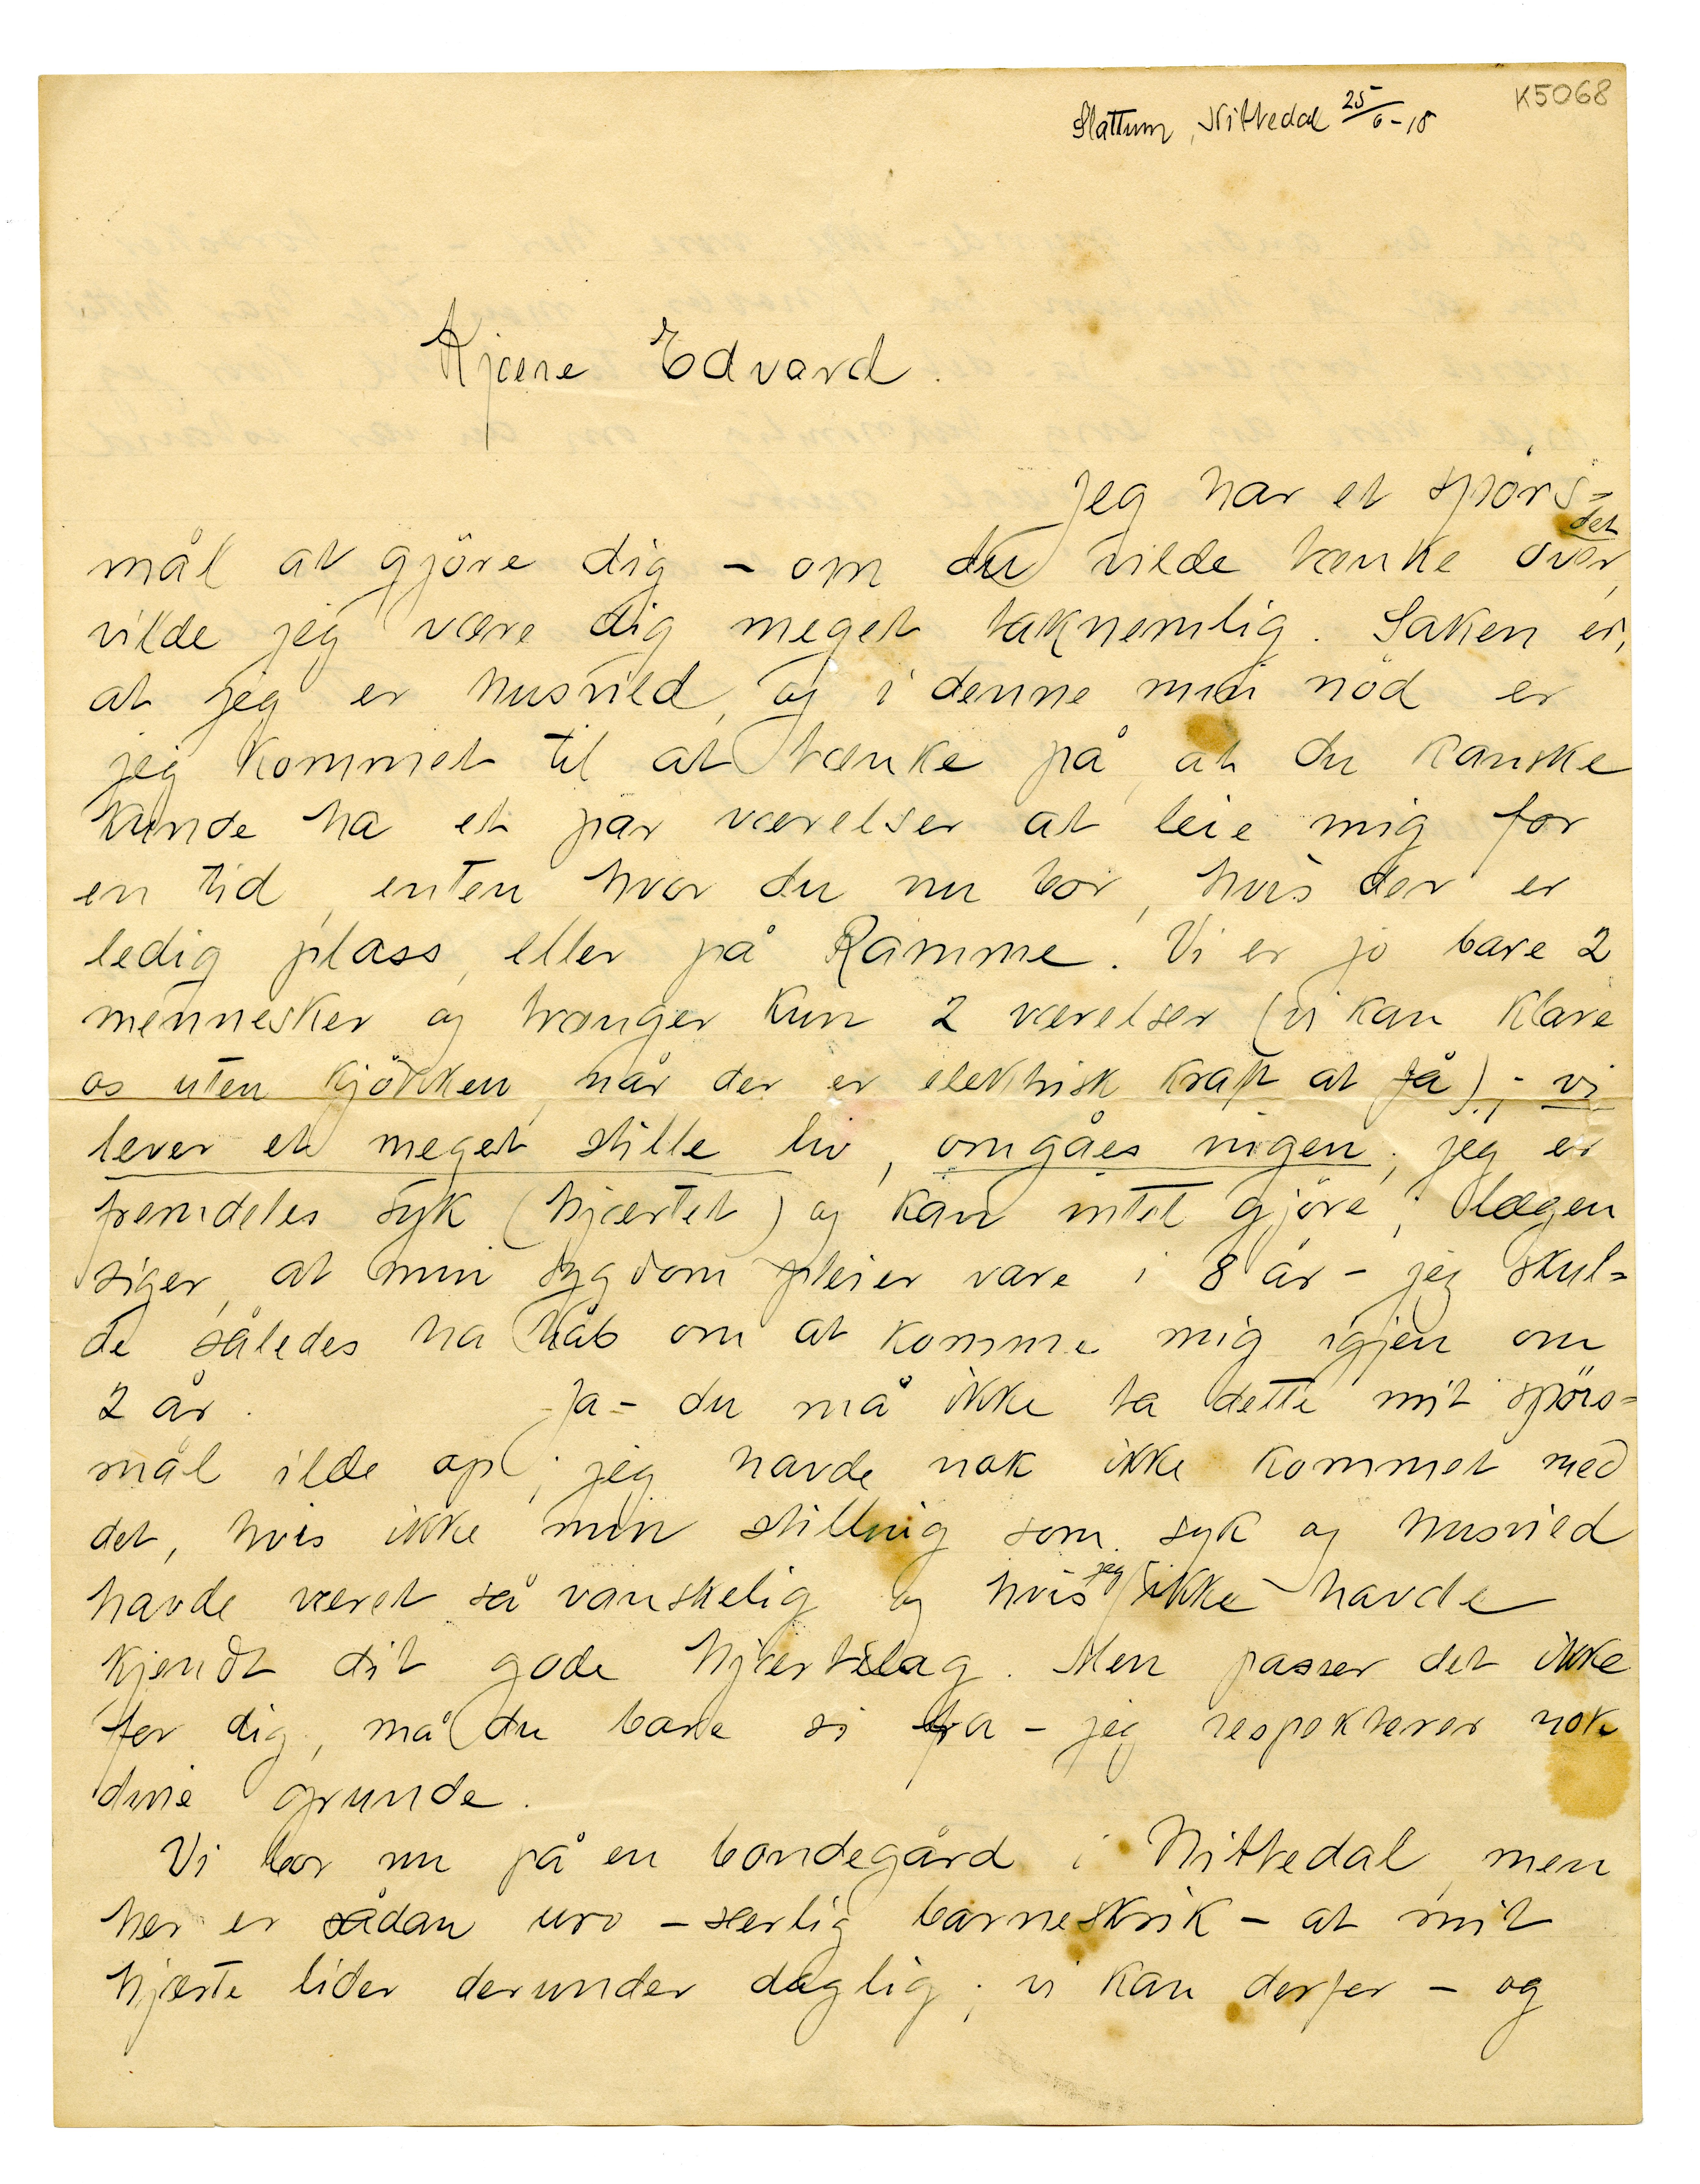 K5068
Slattum, Nittedal 25/6-18
Kjære Edvard.
Jeg har et spörs=
mål at gjöre dig – om du vilde tænke over det,
vilde jeg være dig meget taknemlig. Saken er,
at jeg er husvild, og i denne min nöd er
jeg kommet til at tænke på, at du kanske
kunde ha et par værelser at leie mig for
en tid, enten hvor du nu bor, hvis der er
ledig plass, eller på Ramme. Vi er jo bare 2
mennesker og trænger kun 2 værelser (vi kan klare
os uten kjökken, når der er elektrisk kraft at få); – vi
lever et meget stille liv, omgåes ingen; jeg er
fremdeles syk (hjærtet) og kan intet gjöre; lægen
siger, at min sygdom pleier vare i 8 år – jeg skul=
de således ha håb om at komme mig igjen om
2 år. – Ja – du må ikke ta dette mit spörs=
mål ilde op; jeg havde nok ikke kommet med
det, hvis ikke min stilling som syk og husvild
havde været så vanskelig og hvis jeg ikke havde
kjendt dit gode hjærtelag. Men passer det ikke
for dig, må du bare si fra – jeg respekterer nok
dine grunde.
Vi bor nu på en bondegård i Nittedal, men
her er sådan uro – særlig barneskrik – at mit
hjærte lider derunder daglig; vi kan derfor – og